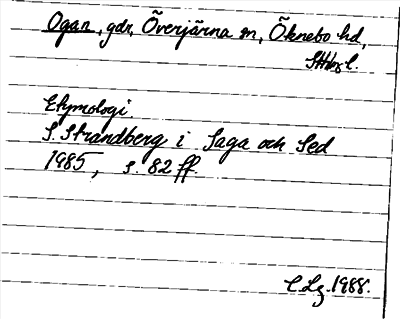 Ogar, gdr, Överjärna sn, Öknebo hd,
Sthlms l.
Etymologi
S. Strandberg i Saga och Sed
1985, s. 82 ff.
C Lg. 1988.